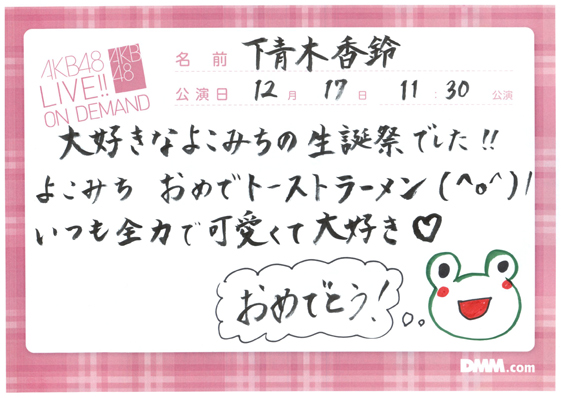 AKB48
LIVE!!
ON DEMAND
AKB
48
名前 下青木香鈴
公演日 12月 17日 11:30 公演
大好きなよこみちの生誕祭でした!!
よこみち おめでトーストラーメン(^o^)!
いつも全力で可愛くて大好き♡
おめでとう!
DMM.com